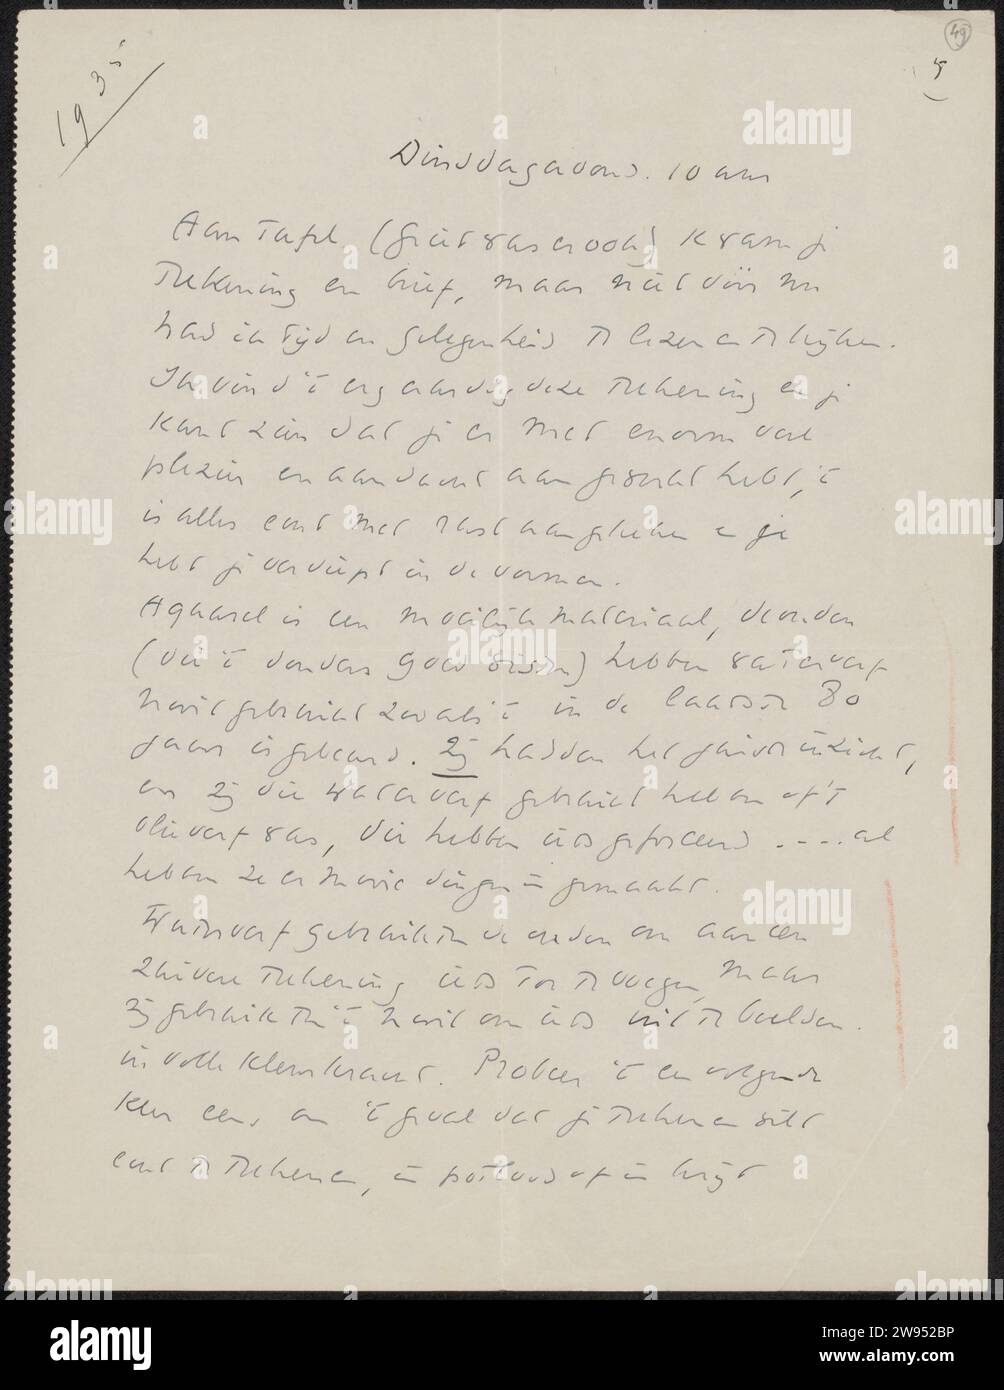 49
5
1935
Dinsdagavond. 10 uur
Aan Tafel (Griet was er ook) kwam je
Tekening en brief, maar niet vóór nu
had ik tijd en gelegenheid te lezen en te kijken.
Ik vind 't erg aardig deze Tekening en je
kunt zien dat je er met enorm veel
plezier en aandacht aan gewerkt hebt, 't
is alles eens met rust aangekeken en je
hebt je verdiept in de vormen.
Aquarel is een moeilijk materiaal, de ouden
(die 't donders goed wisten) hebben waterverf
nooit gebruikt zooals 't in de laatste 80
jaar is gebeurd. Zij hadden het juiste inzicht,
en zij die waterverf gebruikt hebben of 't
olieverf was, die hebben iets geforceerd ..... al
hebben ze er mooie dingen in gemaakt.
Waterverf gebruikten de ouden om aan een
zuivere Tekening iets toe te voegen, maar
zij gebruikten 't nooit om iets uit te beelden.
in volle kleurkracht. Probeer 't en volgende
keer eens, in 't geval dat je Tekenen wilt
eerst te Tekenen, in potlood of in krijt
alamy
www.alamy.com
Image ID: 2W952BP